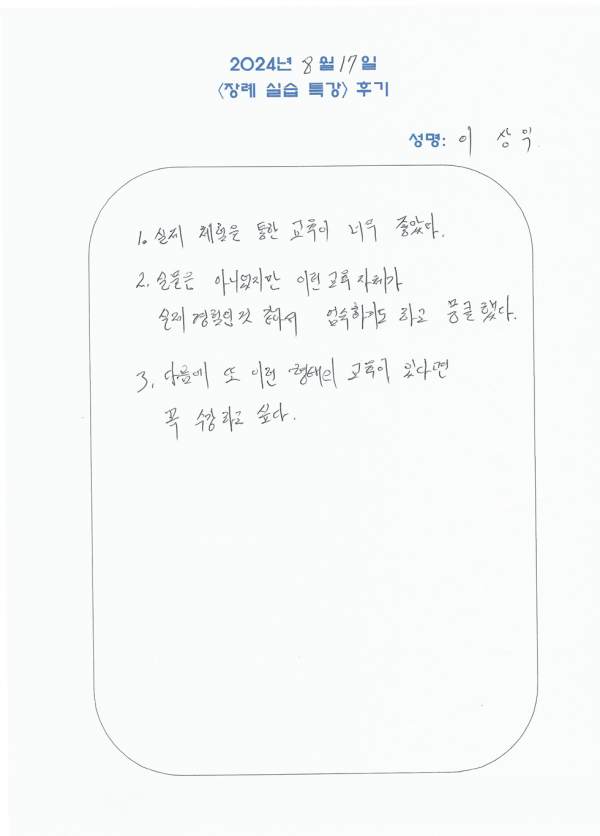 2024년 8월 17일
<장례 실습 특강> 후기
성명: 이 상 익
1. 실제 체험을 통한 교육이 너무 좋았다.
2. 실물은 아니었지만 이런 교육 자체가
실제 경험인것 같아서 엄숙하기도 하고 뭉클했다.
3. 다음에 또 이런 형태의 교육이 있다면
꼭 수강하고 싶다.